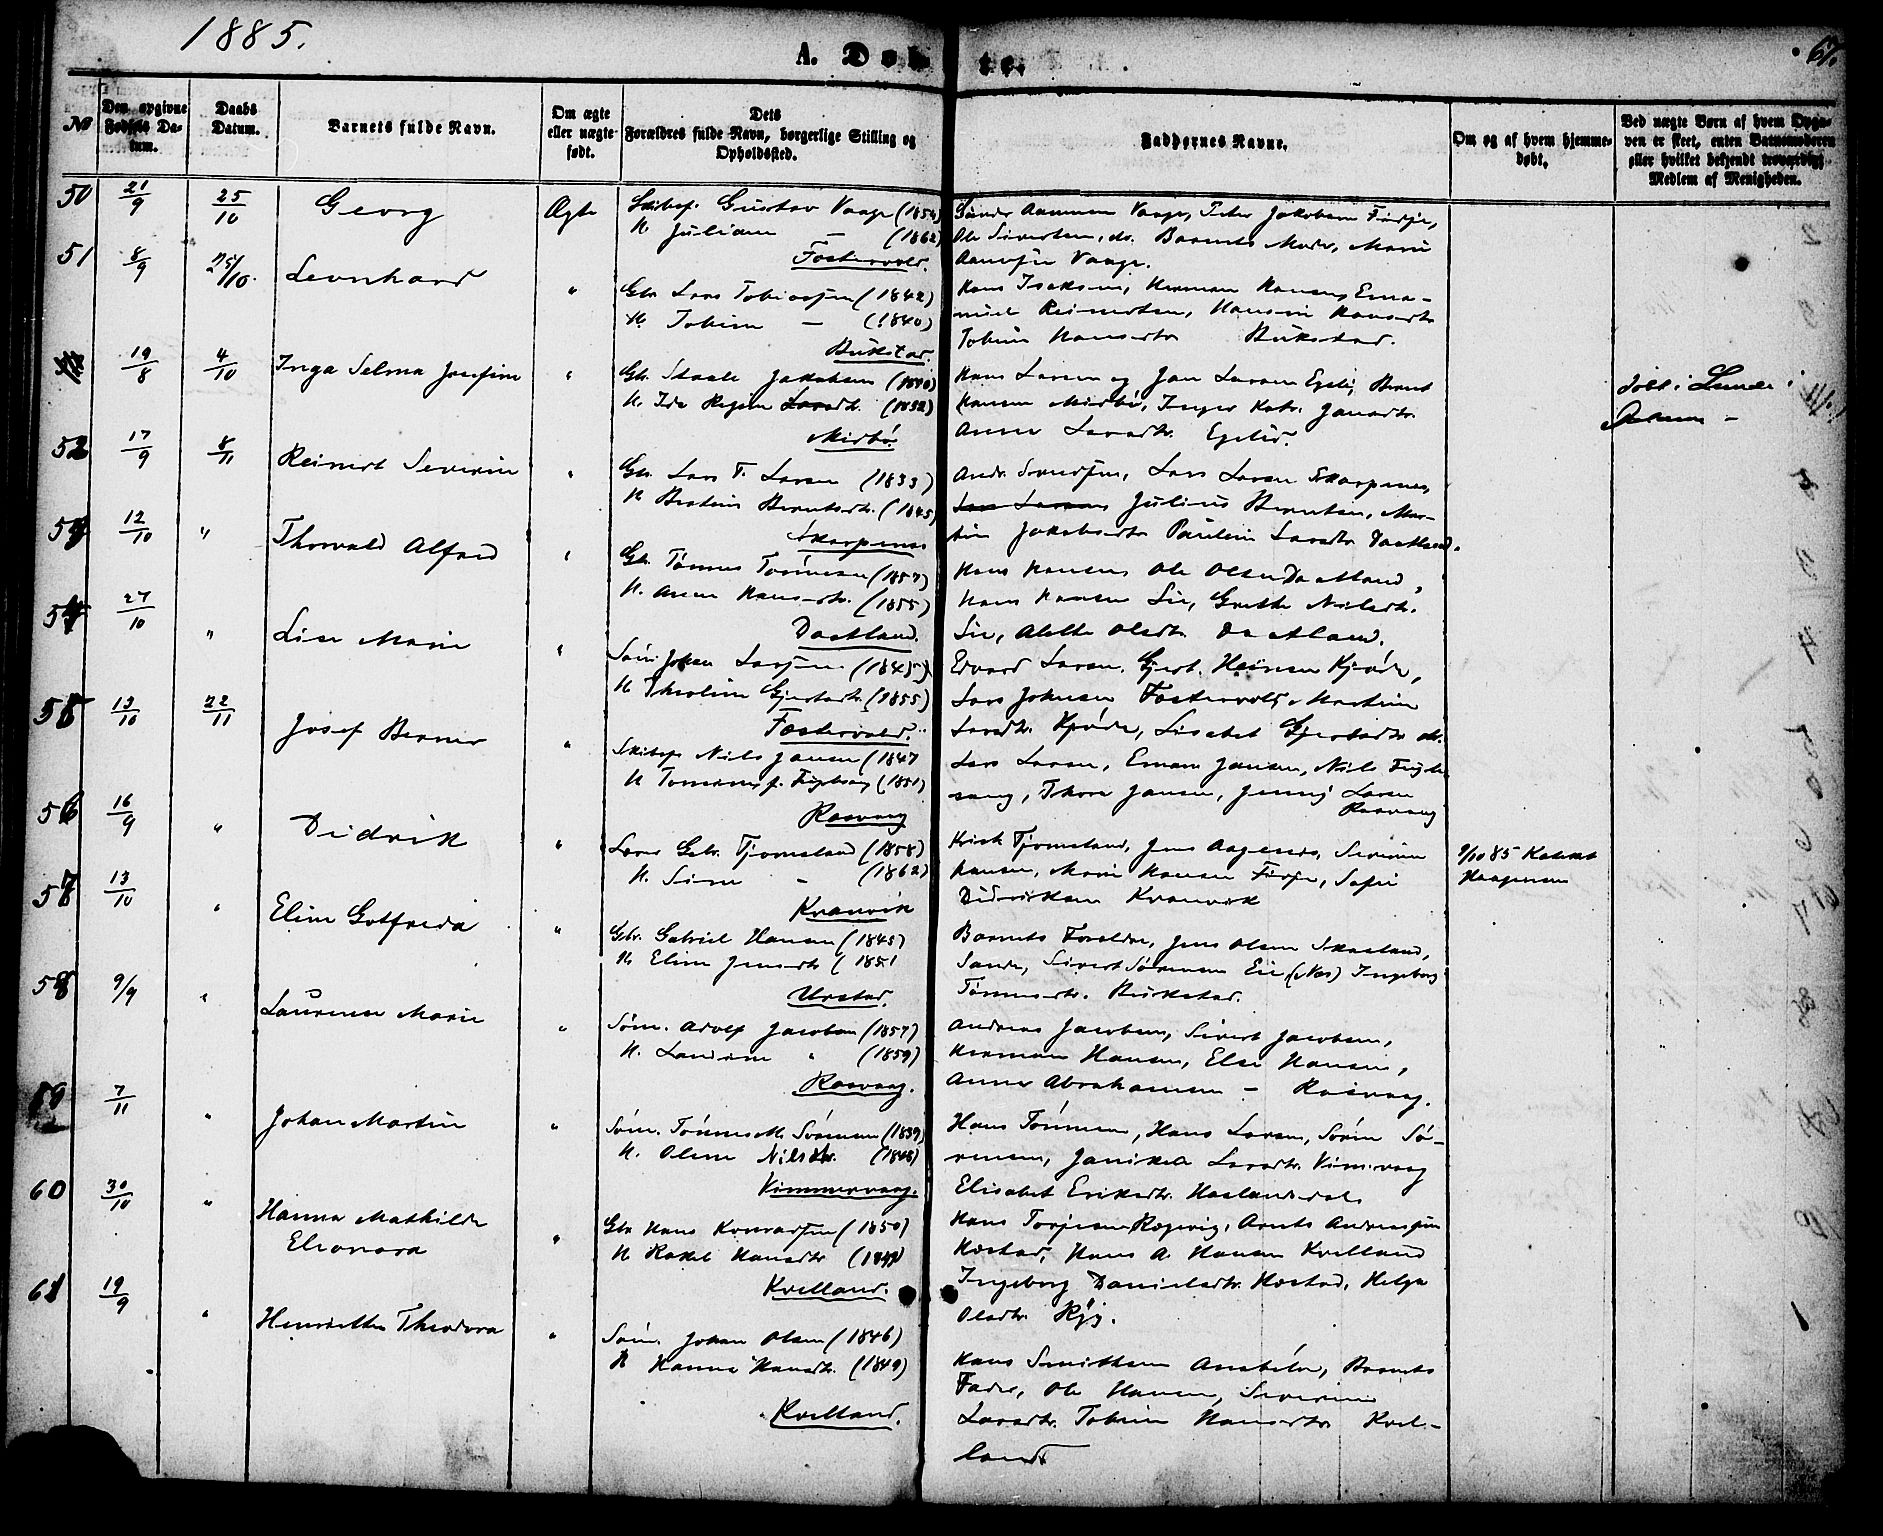 1885.
A. Døbte.
67.
No
Den opgivne Fødsels Datum.
Daabs Datum.
Barnets fulde Navn.
Om ægte eller uægte født.
Dets Forældres fulde Navn, borgerlige Stilling og Opholdssted.
Faddernes Navne.
Om og af hvem hjemmedøbt.
Ved uægte Børn af hvem Opgaven er skeet, enten Barnemoderen eller hvilket bekjendt troværdigt Medlem af Menigheden.
50 21/9 25/10 Georg Ægte
Gustav Vaage (1854)
H. Juliane — (1862)
Fostervold.
Aamsen Vaage, Peter Jakobsen
Ole Sivertsen, Barnets Moder, Marie
Vaage.
51 8/9 25/10. Leonhard "
Gbr Lars Tobiassen (1842)
H. Tobine — (1840)
Bukstad.
Hans Isaksen, Herman Hansen, Ema-
nuel Reinertsen, Hansine Hansdtr
Tobine Hansdtr Bukstad.
19/8 4/10 Inga Selma Josefine "
Gbr. Staale Jakobsen
H. Ida Regine Larsdtr. (1852)
Midbø.
Hans Larsen og Jan Larsen Egelid, Bernt
Hansen Midbø, Inger Katr. Jansdtr.
Anne Larsdtr. Egelid.
døbt i Lunde
52 17/9 8/11 Reinert Severin "
Gbr. Lars T. Larsen (1833)
H Bertine Berntsdtr. (1845)
Skarpenes
Andr. Lars Larsen Skarpenes,
Julius Berntsen, Mar-
tine Jakobsdtr Pauline Larsdtr Daatland.
53 12/10 " Thorvald Alfred "
Gbr. Tønnes Tønnesen (1857)
H. Anne Hansdtr. (1855)
Daatland.
Hans Hansen, Ole Olsen Daatland,
Hans Hansen Lie, Grethe Nilsdtr.
Lie, Alette Olsdtr. Daatland.
54 27/10 " Lise Marie "
Søm. Johan Larsen (1845)
H Theoline Gjertsdtr. (1855)
Fostervold.
Edvard Larsen, Gjert Heinesen Kjørde,
Lars Johnsen Fostervold, Martine
Larsdtr. Kjørde, Lisabet Gjertsdtr
55 13/10 22/11 Josef Berner "
Skibsf Nils Jansen (1847
H Tomine f. Fuglevaag (1851)
Rasvaag
Lars Larsen, Eman Jansen, Nils Fugle-
vaag, Thora Jansen, Jenny Larsen
Rasvaag
56 16/9 " Didrik "
Lærer Gabr. Tjomsland (1858)
H. Sina — (1862)
Kranvik
Krist. Tjomsland, Jens Aagesen, Severin
Hansen, Marie Hansen Sofie
Didriksen Kranvik
9/10 85 Kateket
Haagensen
57 13/10 " Eline Gotfreda "
Gbr. Gabriel Hansen (1845)
H. Eline Jensdtr (1851
Urstad.
Barnets Forældre, Jens Olsen Skaaland,
Sande, Sivert Sørensen Eie (Nes) Ingeborg
Tønnesdtr. Bukstad.
58 9/9 " Laurense Marie "
Søm. Adolf Jacobsen (1857)
H. Landine " (1859)
Rasvaag.
Andreas Jacobsen, Sivert Jacobsen,
Herman Hansen, Else Hansen,
Anne Abrahamsen — Rasvaag.
59 7/11 " Johan Martin "
Søm. Tønnes M. Sørensen (1839)
H. Oline Nilsdtr. (1848)
Vimmervaag.
Hans Tønnesen, Hans Larsen, Søren Sø-
rensen, Janikea Larsdtr. Vimervaag
Elisabet Eriksdtr. Haalandsdal
60 30/10 " Hanna Mathilde
Eleonora "
Gbr Hans Konradsen (1850)
H Rakel Hansdtr
Kvelland.
Hans Torjesen Røgevig, Arnts Andreassen
Hæstad, Hans A. Hansen Kvelland
Ingeborg Danielsdtr. Hæstad, Helga
Olsdtr. Røj.
61 19/9 " Henriette Theodora "
Søm. Johan Olsen (1846)
H Hanne Hansdtr. (1849)
Kvelland.
Hans Smithsen Barnets
Fader, Ole Hansen, Severine
Larsdtr. Tobine Hansdtr. Kvel-
land